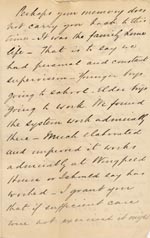 Perhaps your memory does
not carry you back to this
time - It was the family home
life - That is to say we
had personal and constant
supervision - younger boys
going to school. Older boys
going to work. We found
the system work admirably
there - Much elaborated
and improved it works
admirably at Wingfield
House or I should say has
worked - I grant you
that if sufficient care
were not exercised it might